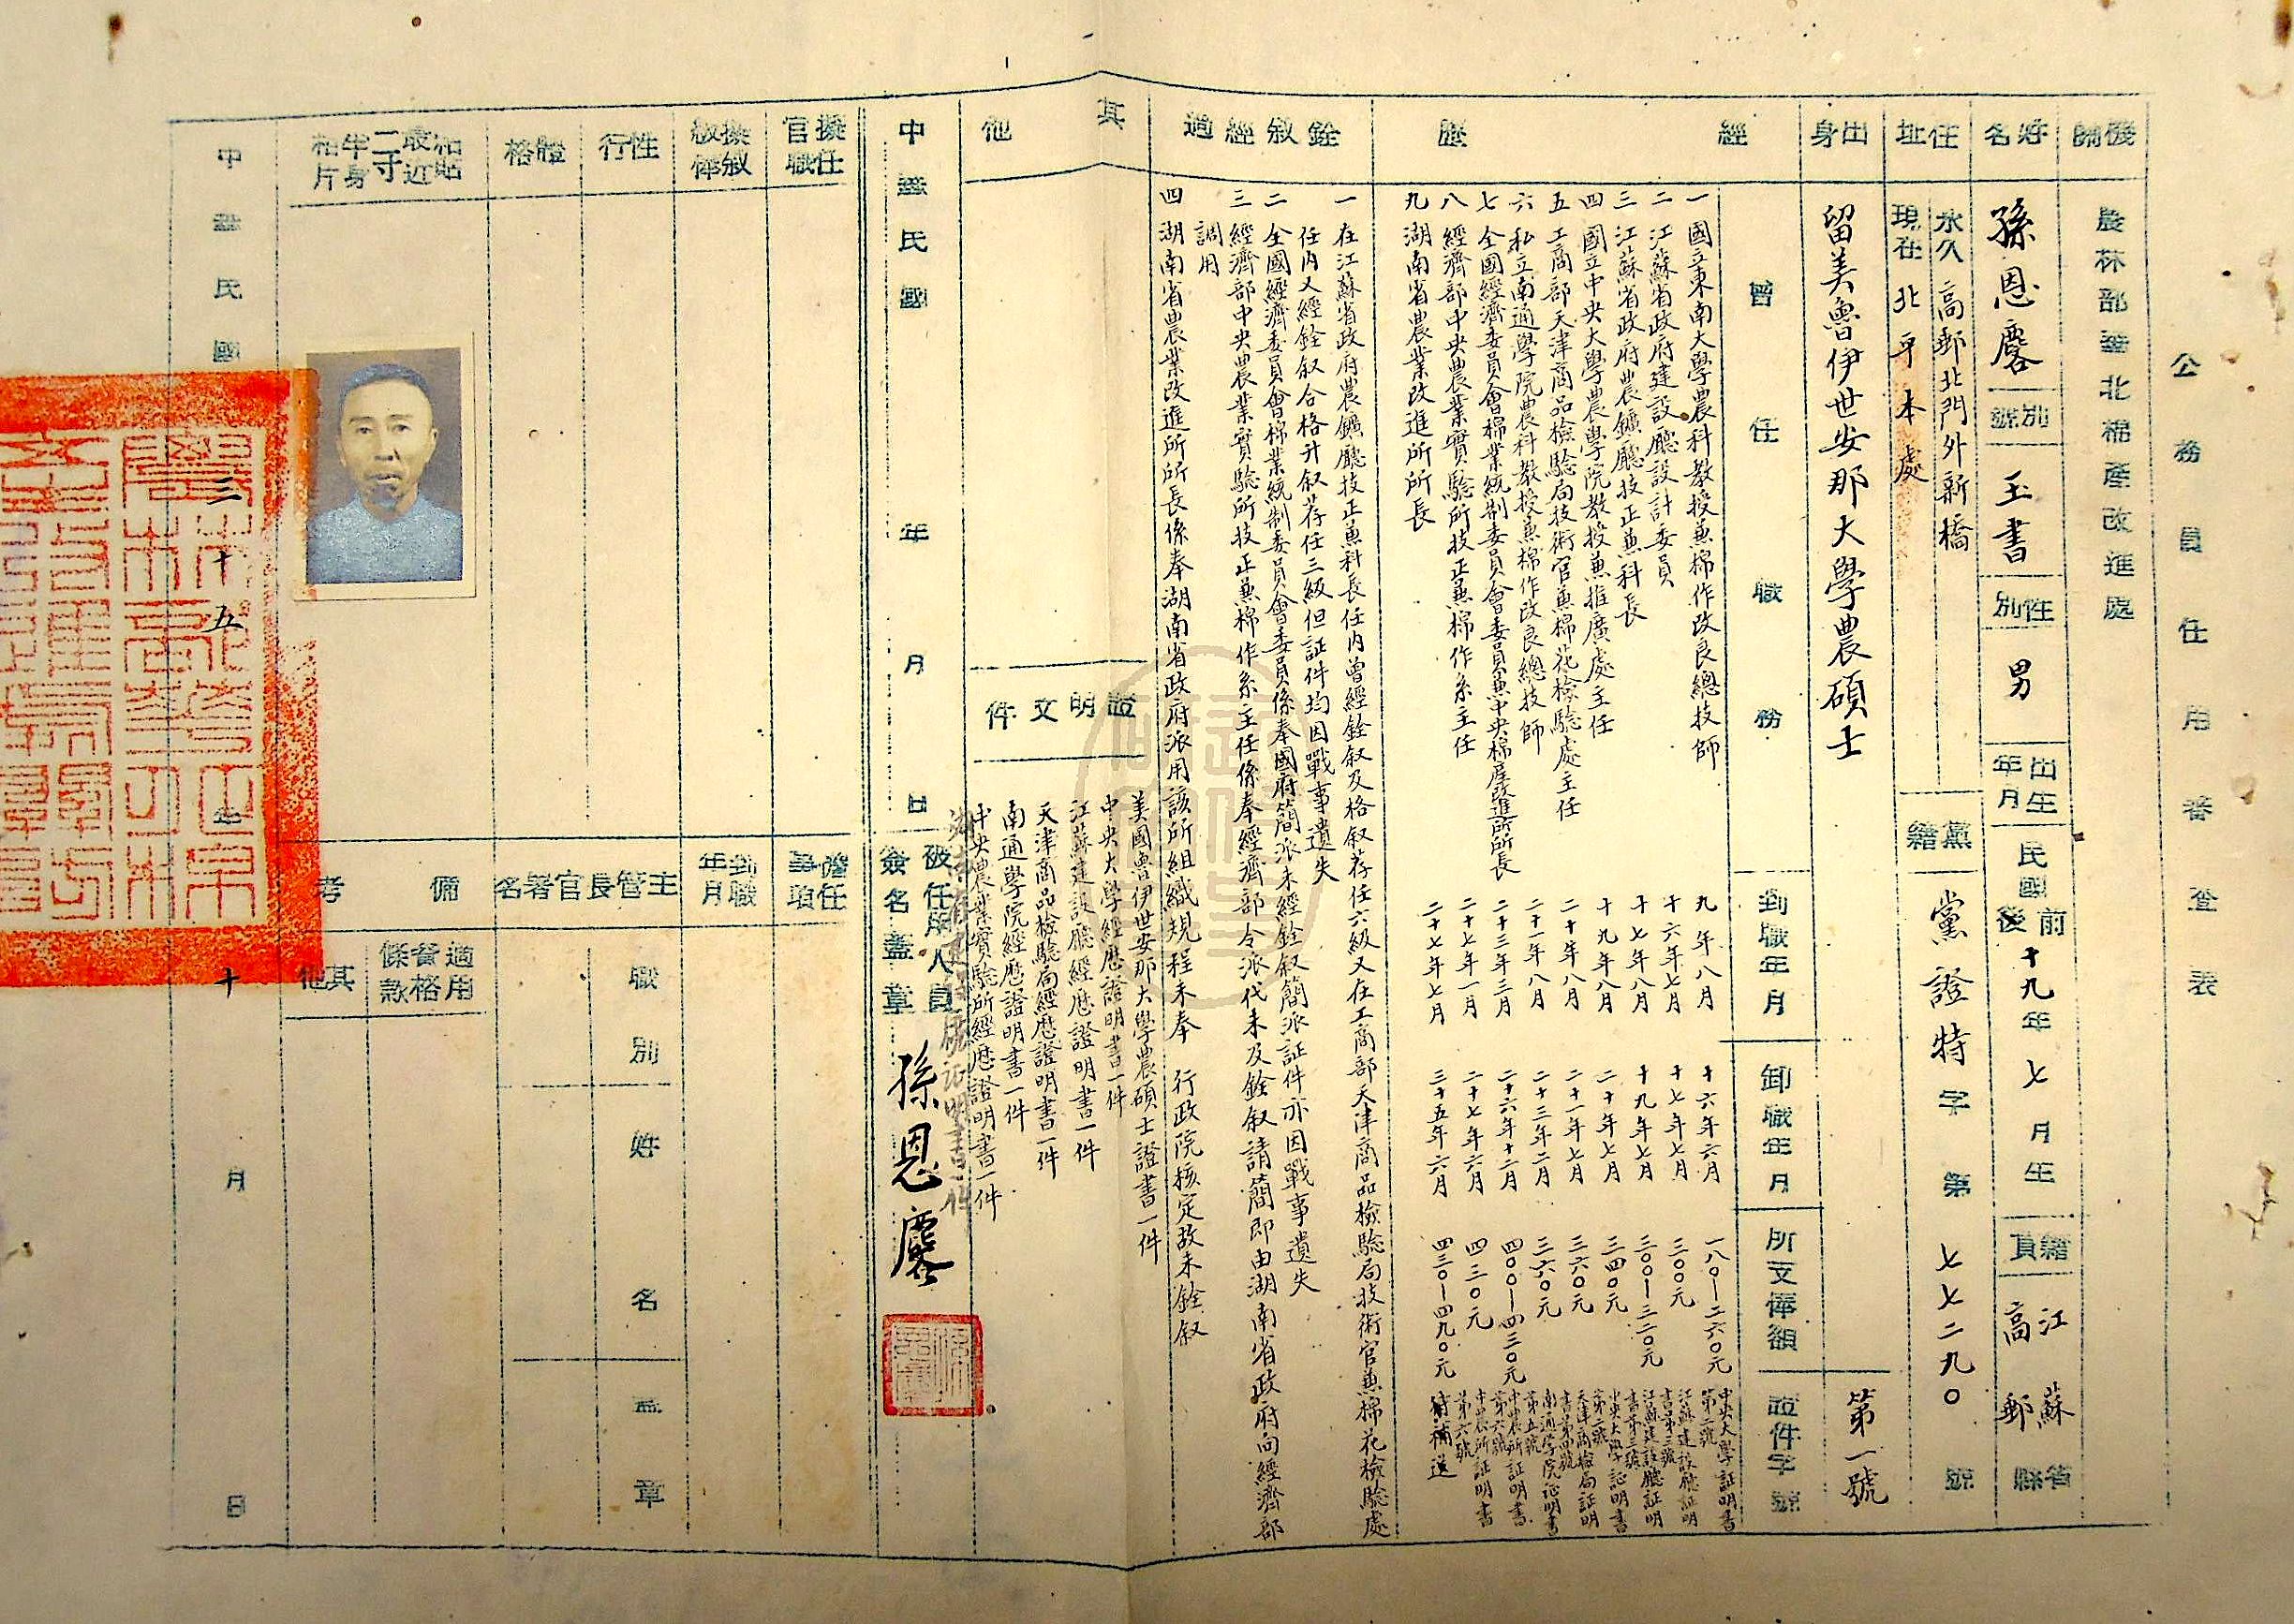 公務員任用審查表
機關
農林部華北棉產改進處
姓名
孫恩麐
別號
玉書
性別
男
出生年月
民國前後十九年七月生
籍貫
江蘇省
高郵縣
住址
永久
高郵北門外新橋
現在
北平本處
黨籍
黨證特字第七七二九〇號
出身
留美魯伊世安那大學農碩士
第一號
經歷
曾任職務
到職年月
卸職年月
所支俸額
證件字號
一 國立東南大學農科教授兼棉作改良總技師 九年八月 十六年六月 一八〇—二六〇元 中央大學証明書第二號
二 江蘇省政府建設廳設計委員 十六年七月 十七年七月 三〇〇元 江蘇建設廳証明書第三號
三 江蘇省政府農鑛廳技正兼科長 十七年八月 十九年七月 三〇〇—三二〇元 江蘇建設廳証明書第三號
四 國立中央大學農學院教授兼推廣處主任 十九年八月 二十年七月 三四〇元 中央大學証明書第二號
五 工商部天津商品檢驗局技術官兼棉花檢驗處主任 二十年八月 二十一年七月 三六〇元 天津商檢局証明書第四號
六 私立南通學院農科教授兼棉作改良總技師 二十一年八月 二十三年二月 三六〇元 南通學院証明書第五號
七 全國經濟委員會棉業統制委員會委員兼中央棉產改進所所長 二十三年三月 二十六年十二月 四〇〇—四三〇元 中農所証明書第六號
八 經濟部中央農業實驗所技正兼棉作系主任 二十七年一月 二十七年六月 四三〇元 中農所証明書第六號
九 湖南省農業改進所所長 二十七年七月 三十五年六月 四三〇—四九〇元 待補送
銓敘經過
一 在江蘇省政府農鑛廳技正兼科長任內曾經銓叙及格叙荐任六級又在工商部天津商品檢驗局技術官兼棉花檢驗處
任內又經銓叙合格升叙荐任三級但証件均因戰事遺失
二 全國經濟委員會棉業統制委員會委員係奉國府簡派未經銓叙簡派証件亦因戰事遺失
三 經濟部中央農業實驗所技正兼棉作系主任係奉經濟部令派代未及銓叙請簡即由湖南省政府向經濟部
調用
四 湖南省農業改進所所長係奉湖南省政府派用該所組織規程未奉 行政院核定故未銓叙
其他
證明文件
美國魯伊世安那大學農碩士證書一件
中央大學經歷證明書一件
江蘇建設廳經歷證明書一件
天津商品檢驗局經歷證明書一件
南通學院經歷證明書一件
中央農業實驗所經歷證明書一件
中華民國 年 月 日
被任用人員簽名蓋章
孫恩麐
擬任官職
擔任事項
擬敘級俸
到職年月
性行
主管長官署名
職別
姓名
蓋章
體格
粘貼最近二寸半身相片
備考
適用資格條款
其他
中華民國三十五年十月 日